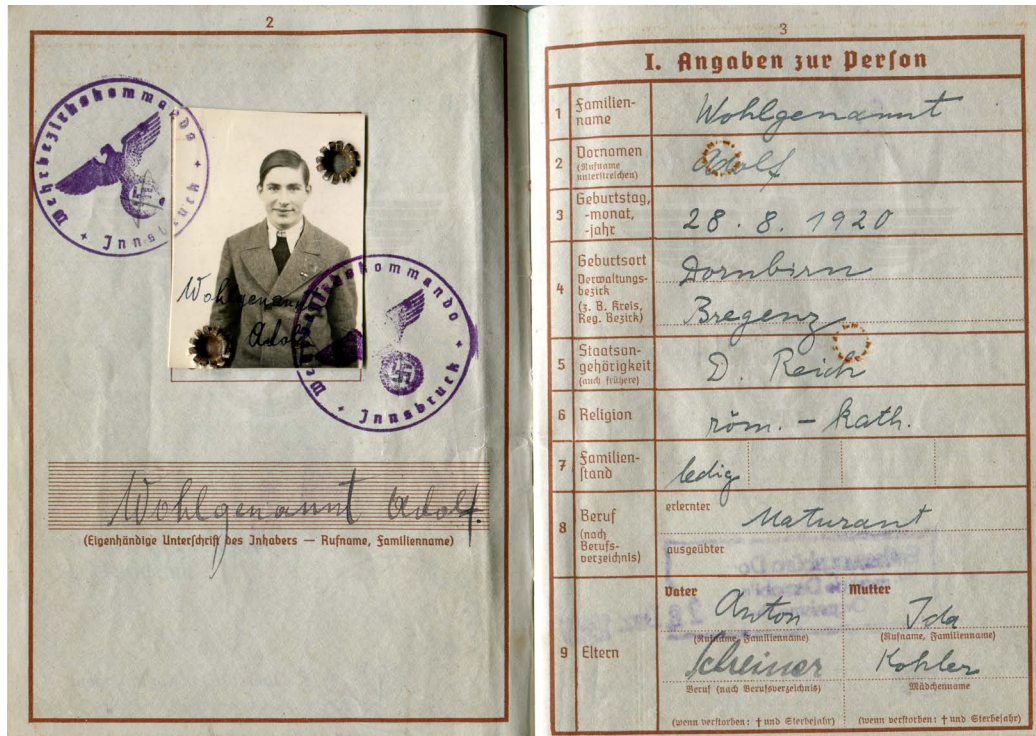 2
Wehrbezirkskommando
Innsbruck
Wohlgenannt
Adolf
Wehrbezirkskommando
Innsbruck
Wohlgenannt Adolf.
(Eigenhändige Unterschrift des Inhabers — Rufname, Familienname)
3
I. Angaben zur Person
1 Familien-
name
Wohlgenannt
2 Vornamen
(Rufname
unterstreichen)
Adolf
3 Geburtstag,
-monat,
-jahr
28. 8. 1920
4 Geburtsort
Verwaltungs-
bezirk
(z. B. Kreis,
Reg. Bezirk)
Dornbirn
Bregenz
5 Staatsan-
gehörigkeit
(auch frühere)
D. Reich
6 Religion
röm. - kath.
7 Familien-
stand
ledig
8 Beruf
(nach
Berufs-
verzeichnis)
erlernter
Maturant
ausgeübter
9 Eltern
Vater
Anton
(Rufname, Familienname)
Schreiner
Beruf (nach Berufsverzeichnis)
(wenn verstorben: † und Sterbejahr)
Mutter
Ida
(Rufname, Familienname)
Kohler
Mädchenname
(wenn verstorben: † und Sterbejahr)